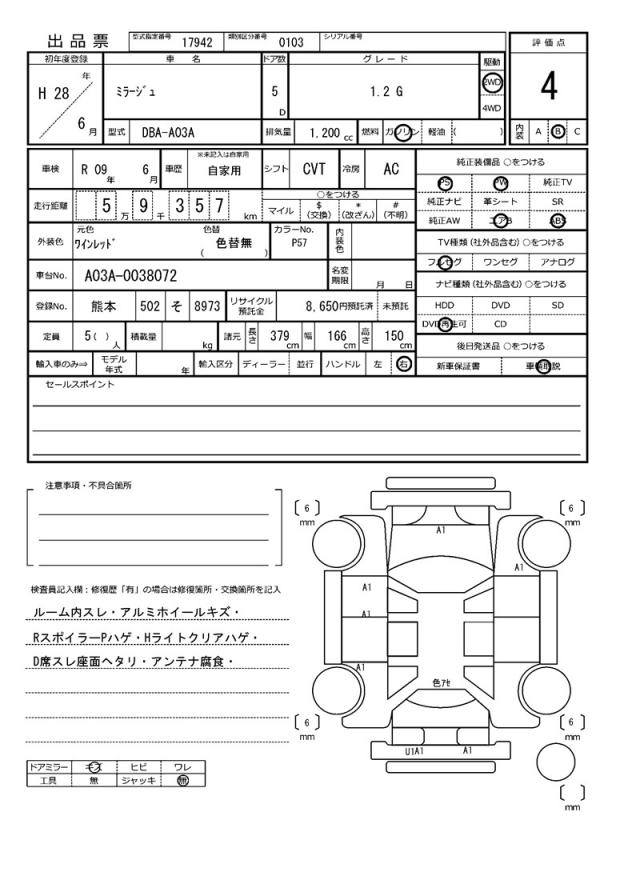 出品票 型式指定番号 17942 類別区分番号 0103 シリアル番号
評価点
4
内装 A B C
初年度登録 車名 ドア数 グレード 駆動
H 28 年 6 月 ミラージュ 5 D 1.2 G 2WD 4WD
型式 DBA-A03A 排気量 1.200 cc 燃料 ガソリン 軽油 ( )
車検 R 09 年 6 月 車歴 ※未記入は自家用 自家用 シフト CVT 冷房 AC
走行距離 5 万 9 千 3 5 7 km ○をつける マイル $(交換) *(改ざん) #(不明)
外装色 元色 ワインレッド 色替 ( 色替無 ) カラーNo. P57 内装色
車台No. A03A-0038072 名変期限 月 日
登録No. 熊本 502 そ 8973 リサイクル預託金 8,650円預託済 未預託
定員 5( ) 人 積載量 kg 諸元 長さ 379 cm 幅 166 cm 高さ 150 cm
輸入車のみ⇒ モデル年式 年 輸入区分 ディーラー 並行 ハンドル 左 右
純正装備品 ○をつける
PS PW 純正TV
純正ナビ 革シート SR
純正AW エアB ABS
TV種類(社外品含む) ○をつける
フルセグ ワンセグ アナログ
ナビ種類(社外品含む) ○をつける
HDD DVD SD
DVD再生可 CD
後日発送品 ○をつける
新車保証書 車輌取説
セールスポイント
注意事項・不具合箇所
検査員記入欄：修復歴「有」の場合は修復箇所・交換箇所を記入
ルーム内スレ・アルミホイールキズ・
RスポイラーPハゲ・Hライトクリアハゲ・
D席スレ座面ヘタリ・アンテナ腐食・
ドアミラー キズ ヒビ ワレ
工具 無 ジャッキ 無
6 mm 6 mm
A1
A1
A1
A1
A1
色アセ
6 mm 6 mm
U1A1 A1
mm